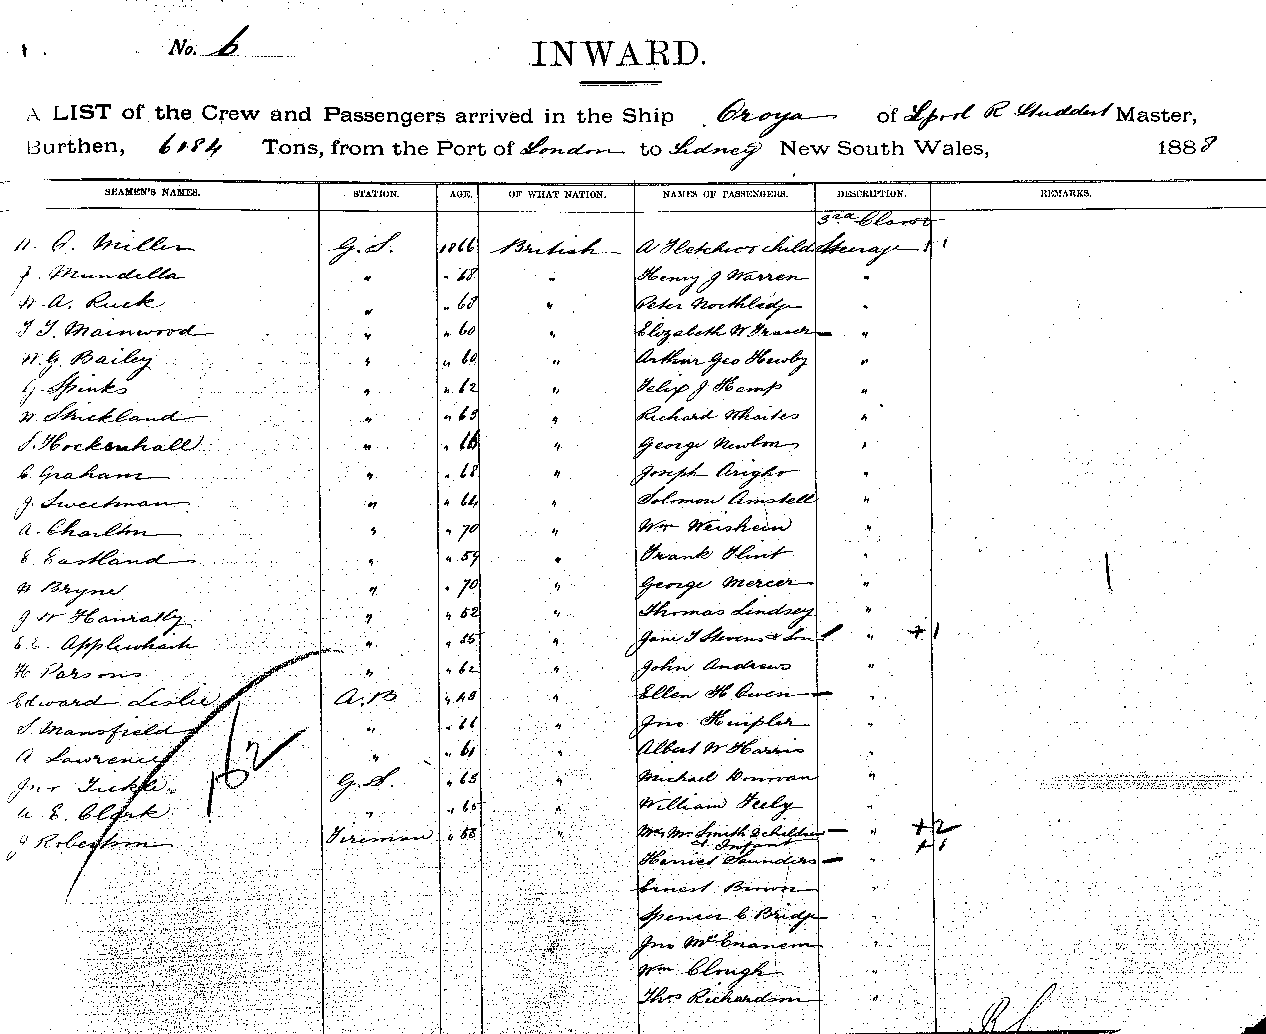 No. 6
INWARD.
A LIST of the Crew and Passengers arrived in the Ship Oroya of Lpool R Studdert Master,
Burthen, 6184 Tons, from the Port of London to Sidney New South Wales, 1888
SEAMEN'S NAMES. STATION. AGE. OF WHAT NATION. NAMES OF PASSENGERS. DESCRIPTION. REMARKS.
3rd Class
A. Miller G.S. 1866 British A Fletcher & child Steerage 1 1
J. Mundella " " 68 " Henry J Warren "
A. Ruck " " 68 " Peter Northledge "
T T. Mainwood " " 60 " Elizabeth W Fraser "
G. Bailey " " 60 " Arthur Geo Hewby "
G. Spinks " " 62 " Felix J Hemp "
Strickland " " 63 " Richard Whaites "
Hockenhall " " 66 " George Newbon "
C. Graham " " 68 " Joseph Arigho "
J. Sweetman " " 64 " Solomon Amstell "
A. Charlton " " 70 " Wm Weishein "
E. Eastland " " 59 " Frank Flint "
Bryne " " 70 " George Mercer "
J W Hanratty " " 52 " Thomas Lindsey "
E. E. Applewhaite " " 55 " Jane T Stevens & Son " +1
H Parsons " " 62 " John Andrews "
Edward Leslie A.B " 48 " Ellen H Owen "
S. Mansfield " " 66 " Jno Huipler "
A Lawrence " " 61 " Albert W Harris "
Jno Tickle G.S. " 63 " Michael Donovan "
A E. Clark " " 65 " William Feely "
J Robertson Fireman " 58 " Mrs M. Smith 2 children " +2
& Infant +1
Harriet Saunders "
Ernest Brown "
Spencer C Bridge "
Jno McEnanem "
Wm Clough "
Thos Richardson "
162